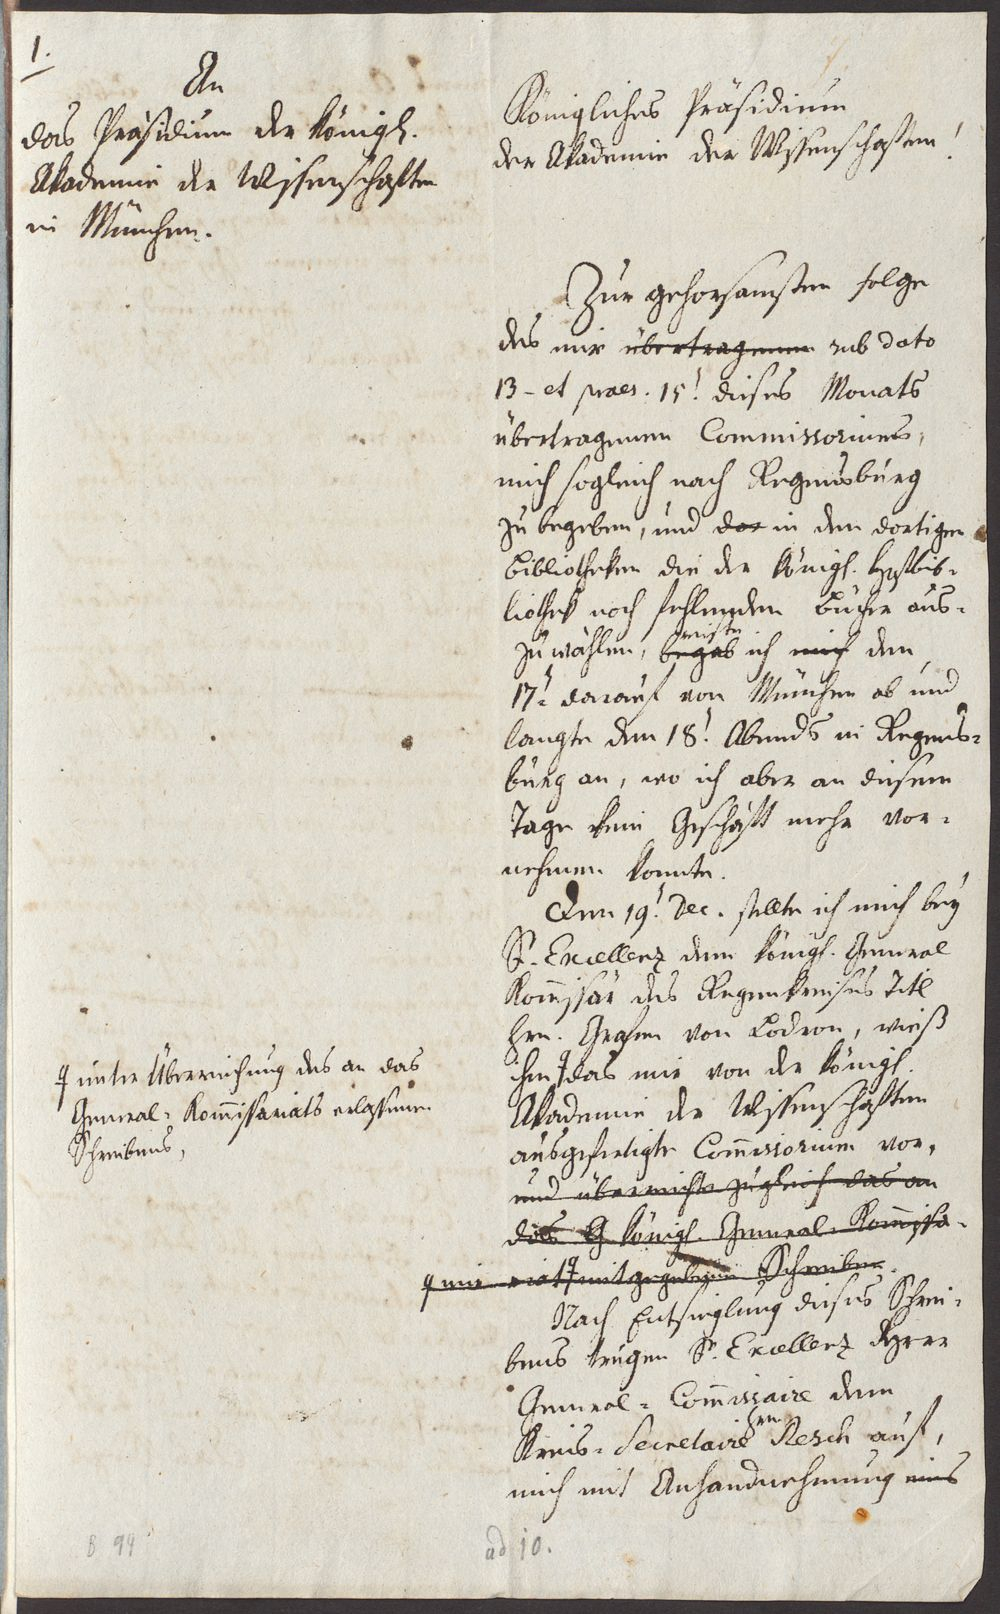 1.
An
das Präsidium der königl.
Akademie der Wissenschaften
in München.
Königliches Präsidium
der Akademie der Wissenschaften!
Zur gehorsamsten Folge
des mir übertragenen sub dato
13 - et praes. 15! dieses Monats
übertragenen Commissoriums,
mich sogleich nach Regensburg
zu begeben, und dor in den dortigen
Bibliotheken die der königl. Hofbib-
liothek noch fehlenden Bücher aus-
zuwählen, begab reiste ich mich den
17! darauf von München ab und
langte den 18! Abends in Regens-
burg an, wo ich aber an diesem
Tage kein Geschäft mehr vor-
nehmen konnte.
Den 19! Dec. stellte ich mich bey
Sr. Excellenz dem königl. General
Kommissär des Regenkreises Titl
Hrn. Grafen von Lodron, wieß
ihm das mir von der königl.
Akademie der Wissenschaften
ausgefertigte Commissorium vor,
und überreichte zugleich das an
das G königl. General-Kommissa-
riat mitgegebene Schreiben.
mir
unter Überreichung des an das
General-Kommissariats erlassenen
Schreibens,
Nach Entsieglung dieses Schrei-
bens trugen Sr. Excellenz Herr
General-Commissaire dem
Kreis-Secretaire Hrn. Resch auf,
mich mit Anhandnehmung eines
B 99
ad 10.